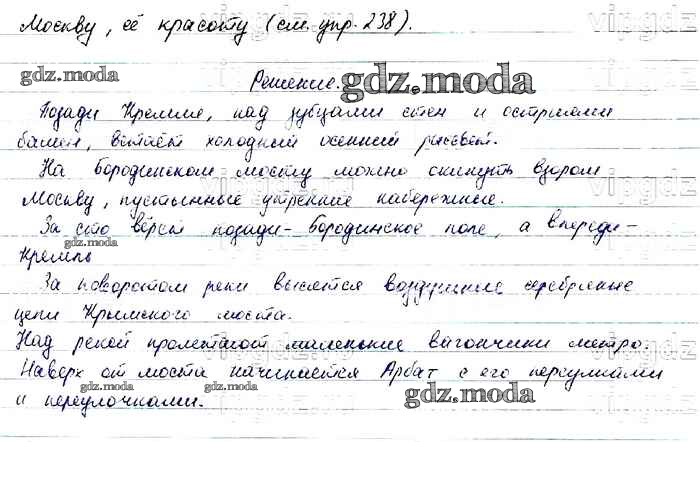 Москву, её красоту (см. упр. 238).
gdz.moda
Решение.
gdz.moda
Позади Кремля, над зубцами стен и остриями
башен, встаёт холодный осенний рассвет.
На Бородинском мосту можно окинуть взором
Москву, пустынные утренние набережные.
За сто вёрст позади - Бородинское поле, а впереди -
gdz.moda
Кремль
За поворотом реки высятся воздушные серебряные
цепи Крымского моста.
Над рекой пролетают маленькие вагончики метро.
Наверх от моста начинается Арбат с его переулками
gdz.moda
gdz.moda
gdz.moda
и переулочками.
vipgdz
vipgdz
vipgdz
vipgdz
vipgdz